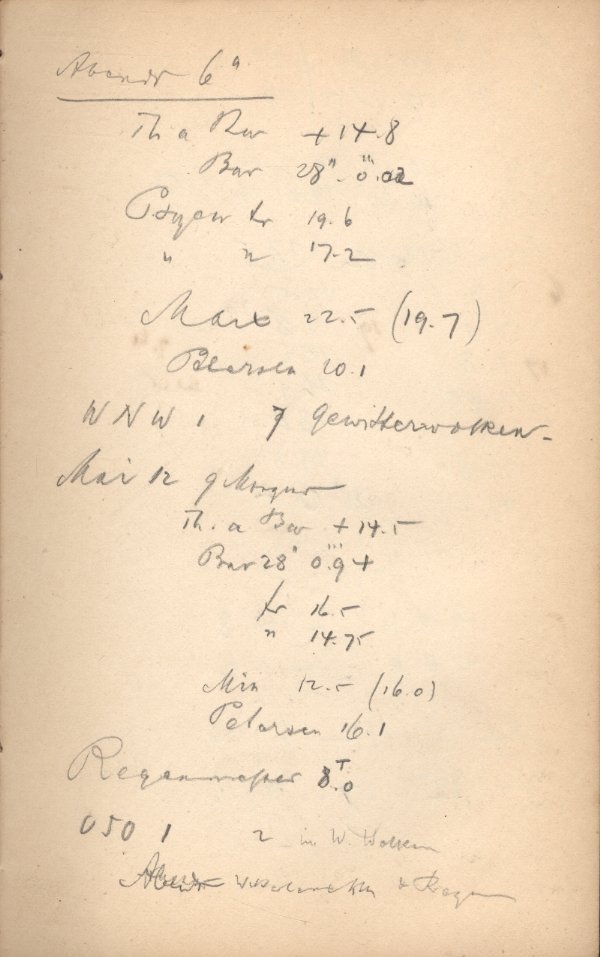 Abends 6 a
Th a Bar +14.8
Bar 28" 0'''.02
Psychr tr 19.6
" n 17.2
Max 22.5 (19.7)
Petersen 20.1
WNW 1 7 Gewitterwolken
Mai 12 9 Morgens
Th. a Bar +14.5
Bar 28" 0'''.9+
tr 16.5
n 14.75
Min 12.5 (16.0)
Petersen 16.1
Regenmesser 8 T.0
OSO 1 2 in W. Wolken
Abends & Regen